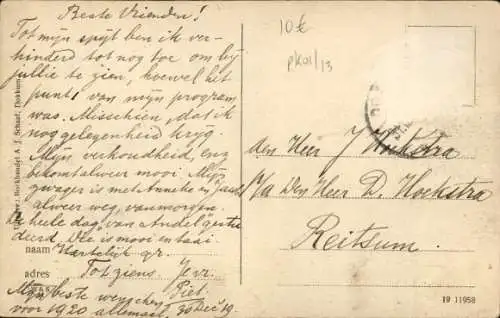 Beste Vrienden!
Tot mijn spijt ben ik ver-
hinderd tot nog toe om bij
jullie te zien, hoewel het
punt van mijn program
was. Misschien, dat ik
nog gelegenheid kryg.
Mijn verkoudheid, enz
bekomt alweer mooi. Mijn
zwager is met Anneke
alweer weg, vanmorgen.
De heele dag van Andel
deerd. Die is mooi in taai
naam Hartelijk gr.
adres Tot ziens.
Piet.
Mijn beste wenschen
voor 1920 allemaal. 30 Dec 19.
Uitgever: Boekhandel A. J. Schaaf, Dokkum
10 €
pk01/13
den Heer J Hoekstra
p/a Den Heer D. Hoekstra
Reitsum.
19 11958